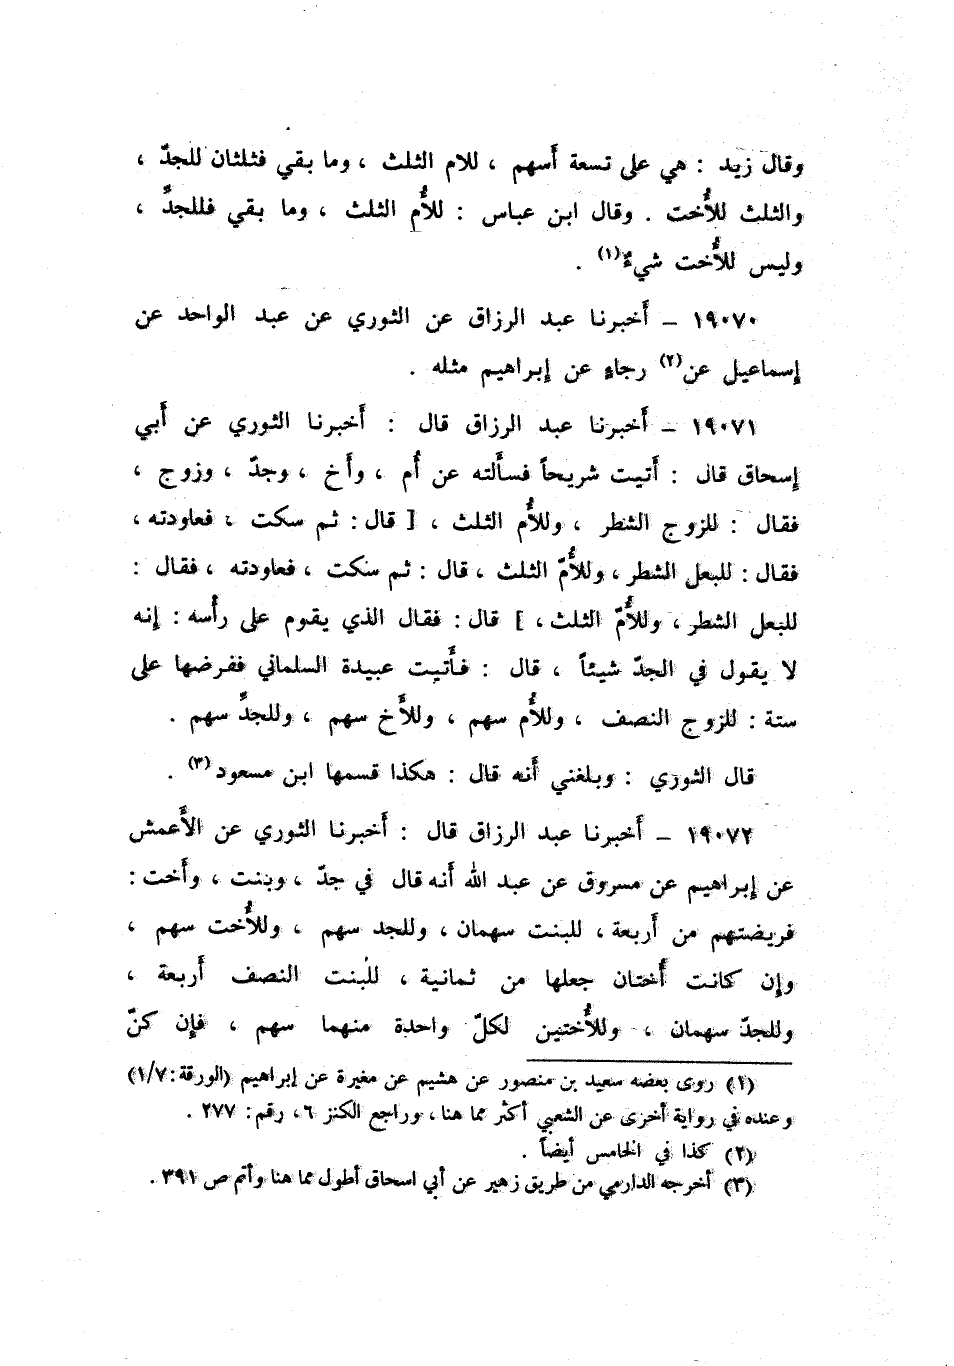 وقال زيد : هي على تسعة أسهم ، للام الثلث ، وما بقي فثلثان للجدّ ،
والثلث للأُخت . وقال ابن عباس : للأُم الثلث ، وما بقي فللجدِّ ،
وليس للأُخت شيءٌ(١) .
١٩٠٧٠ – أَخبرنا عبد الرزاق عن الثوري عن عبد الواحد عن
إسماعيل عن(٢) رجاءٍ عن إبراهيم مثله .
١٩٠٧١ – أَخبرنا عبد الرزاق قال : أَخبرنا الثوري عن أَبي
إسحاق قال : أَتيت شريحاً فسأَلته عن أُم ، وأَخ ، وجدّ ، وزوج ،
فقال : للزوج الشطر ، وللأُم الثلث ، [ قال : ثم سكت ، فعاودته ،
فقال : للبعل الشطر ، وللأُمّ الثلث ، قال : ثم سكت ، فعاودته ، فقال :
للبعل الشطر ، وللأُمّ الثلث ، ] قال : فقال الذي يقوم على رأْسه : إنه
لا يقول في الجدّ شيئاً ، قال : فأَتيت عبيدة السلماني ففرضها على
ستة : للزوج النصف ، وللأُم سهم ، وللأَخ سهم ، وللجدِّ سهم .
قال الثوري : وبلغني أَنه قال : هكذا قسمها ابن مسعود(٣) .
١٩٠٧٢ – أَخبرنا عبد الرزاق قال : أَخبرنا الثوري عن الأَعمش
عن إبراهيم عن مسروق عن عبد الله أَنه قال في جدّ ، وبنت ، وأَخت :
فريضتهم من أَربعة ، للبنت سهمان ، وللجد سهم ، وللأُخت سهم ،
وإن كانت أُختان جعلها من ثمانية ، للبنت النصف أَربعة ،
وللجدّ سهمان ، وللأُختين لكلّ واحدة منهما سهم ، فإن كنّ
(١) روى بعضه سعيد بن منصور عن هشيم عن مغيرة عن إبراهيم (الورقة : ١/٧)
وعنده في رواية أخرى عن الشعبي أكثر مما هنا ، وراجع الكنز ٦ ، رقم : ٢٧٧ .
(٢) كذا في الخامس أيضاً .
(٣) أخرجه الدارمي من طريق زهير عن أبي اسحاق أطول مما هنا وأتم ص ٣٩١ .